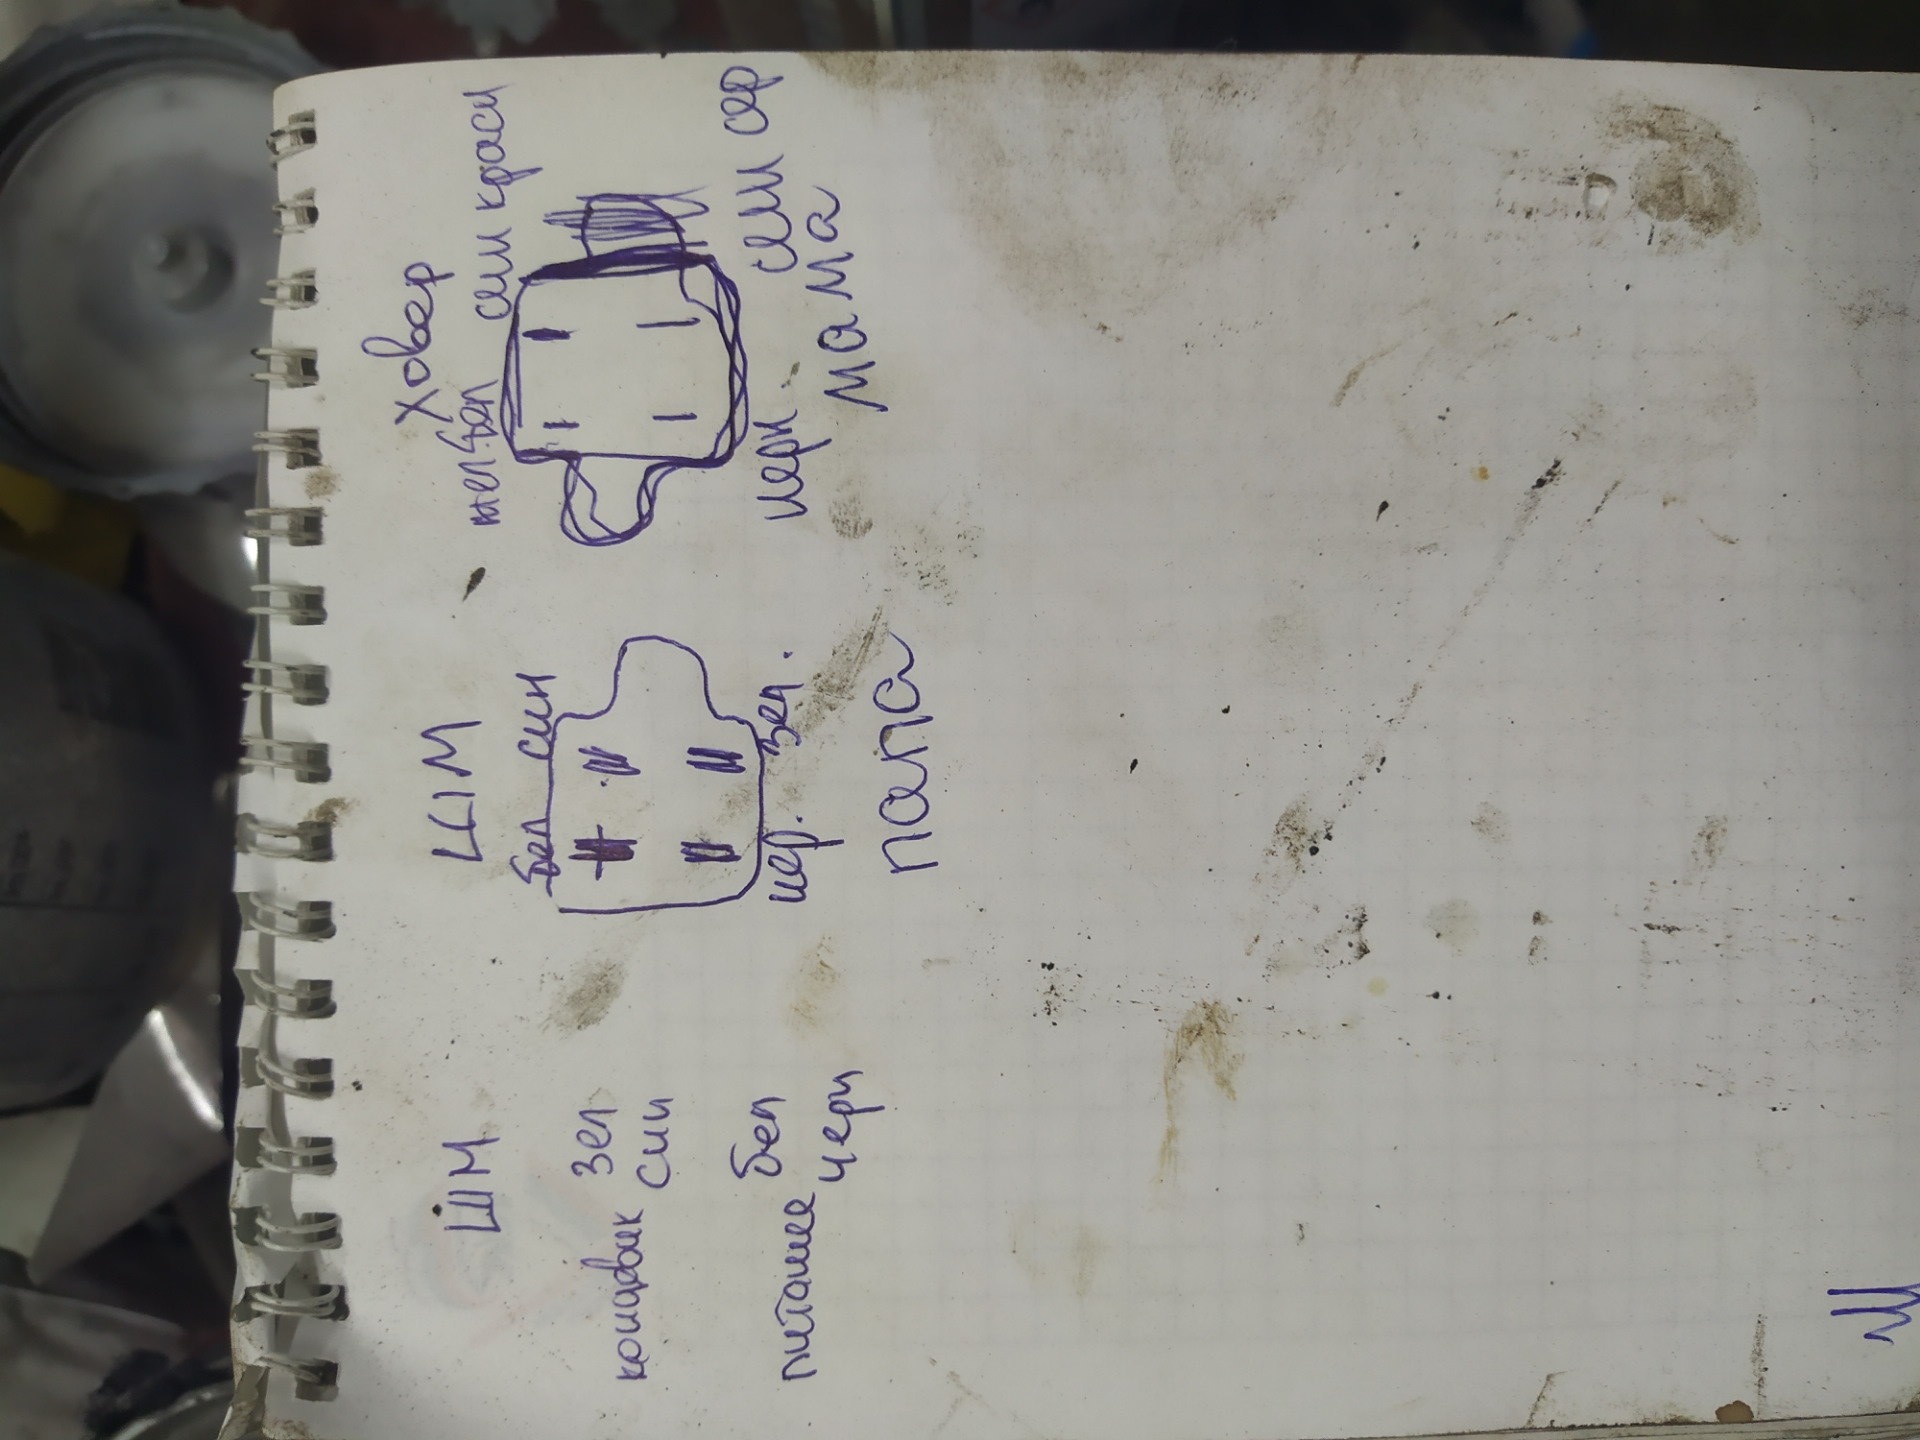 ШМ
концевик зел
син
питание бел
черн
ШМ
бел син
чер. зел.
папа
Ховер
жел бел син красн
черн. син сер
мама